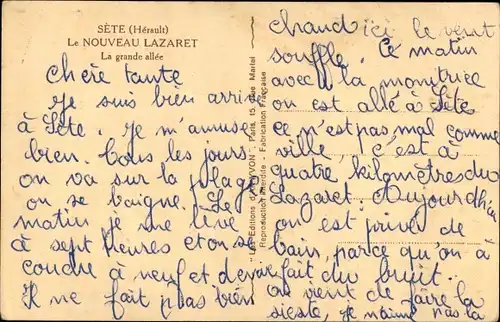 SÈTE (Hérault)
Le NOUVEAU LAZARET
La grande allée
chère tante
je suis bien arrivé
à Sète. je m'amuse
bien. tous les jours
on va sur la plage
on se baigne. Le
matin je me lève
à sept heures et on se
couche à neuf et demie
Il ne fait pas bien
Les Editions d'Art YVON. Paris, 15, Rue Martel
Reproduction interdite - Fabrication Française
chaud ici le vent
souffle. Ce matin
avec la monitrice
on est allé à Sète
ce n'est pas mal comme
ville, c'est à
quatre kilomètres du
Lazaret. Aujourd'hui
on est privé de
bain, parce qu'on a
fait du bruit.
on vient de faire la
sieste, je n'aime pas la